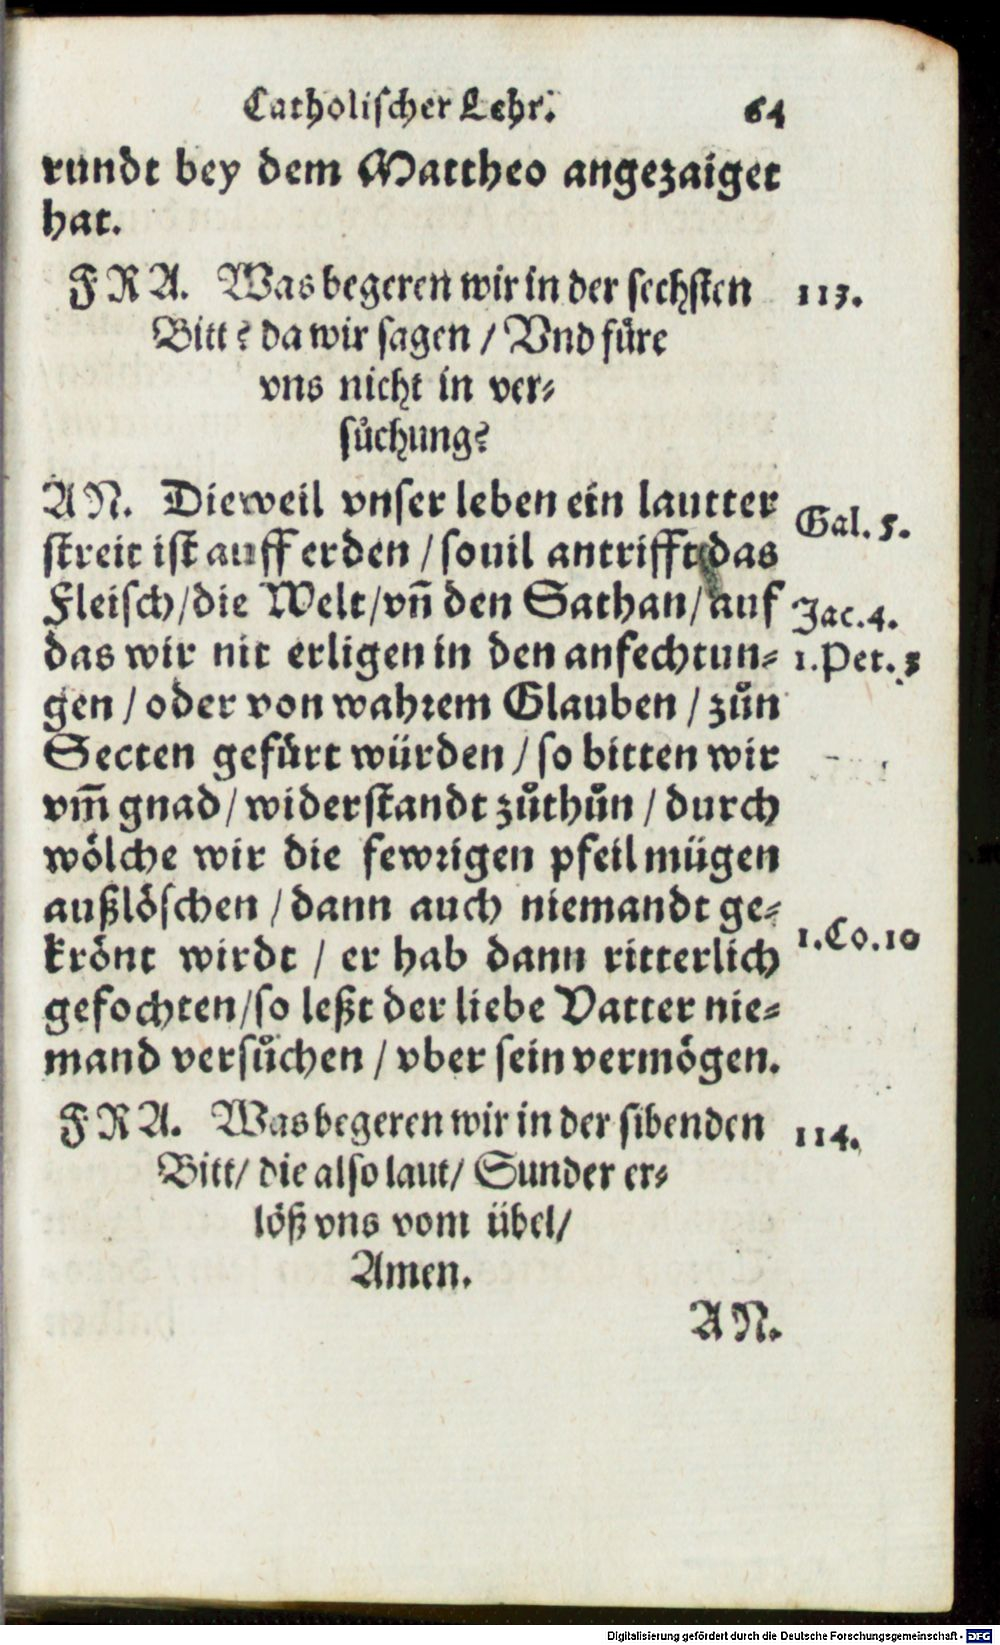 Catholischer Lehr. 64
rundt bey dem Mattheo angezaiget
hat.
FRA. Was begeren wir in der sechsten 113.
Bitt? da wir sagen / Vnd füre
vns nicht in ver⸗
sůchung?
AN. Dieweil vnser leben ein lautter
streit ist auff erden / souil antrifft das Gal. 5.
Fleisch/die Welt/vn̄ den Sathan/auf Jac. 4.
das wir nit erligen in den anfechtun⸗ 1. Pet. 5
gen / oder von wahrem Glauben / zůn
Secten gefürt würden / so bitten wir
vm̄ gnad / widerstandt zůthůn / durch
wölche wir die fewrigen pfeil mügen
außlöschen / dann auch niemandt ge⸗
krönt wirdt / er hab dann ritterlich 1. Co. 10
gefochten/so leßt der liebe Vatter nie⸗
mand versůchen / vber sein vermögen.
FRA. Was begeren wir in der sibenden 114.
Bitt/ die also laut/ Sunder er⸗
löß vns vom übel/
Amen.
AN.
Digitalisierung gefördert durch die Deutsche Forschungsgemeinschaft - DFG